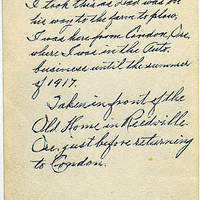 I took this as Dad was on
his way to the farm to plow,
I was her from Condon, Ore,
where I was in the Auto.
business until the summer
of 1917.
Taken in front of the
Old Home in Reedville
Ore, just before returning
to Condon.